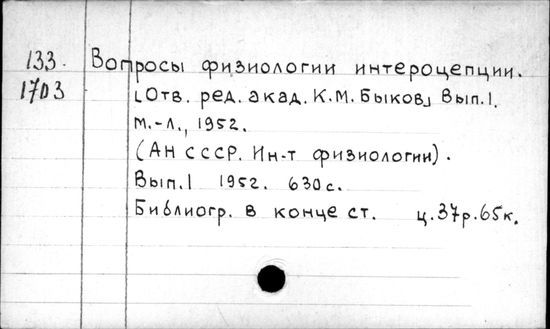 133. Вопросы физиологии интероцепции.
1703 [Отв. ред. акад. К.М. Быков] Вып.1.
М.-Л., 1952.
(АН СССР. Ин-т физиологии).
Вып.1 1952. 630с.
Библиогр. в конце ст. ц.37р.65к.